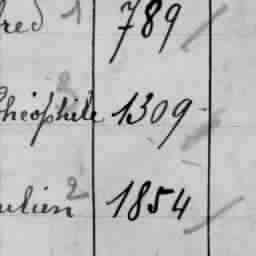 red 1 789
Théophile 1309
ulien 2 1854